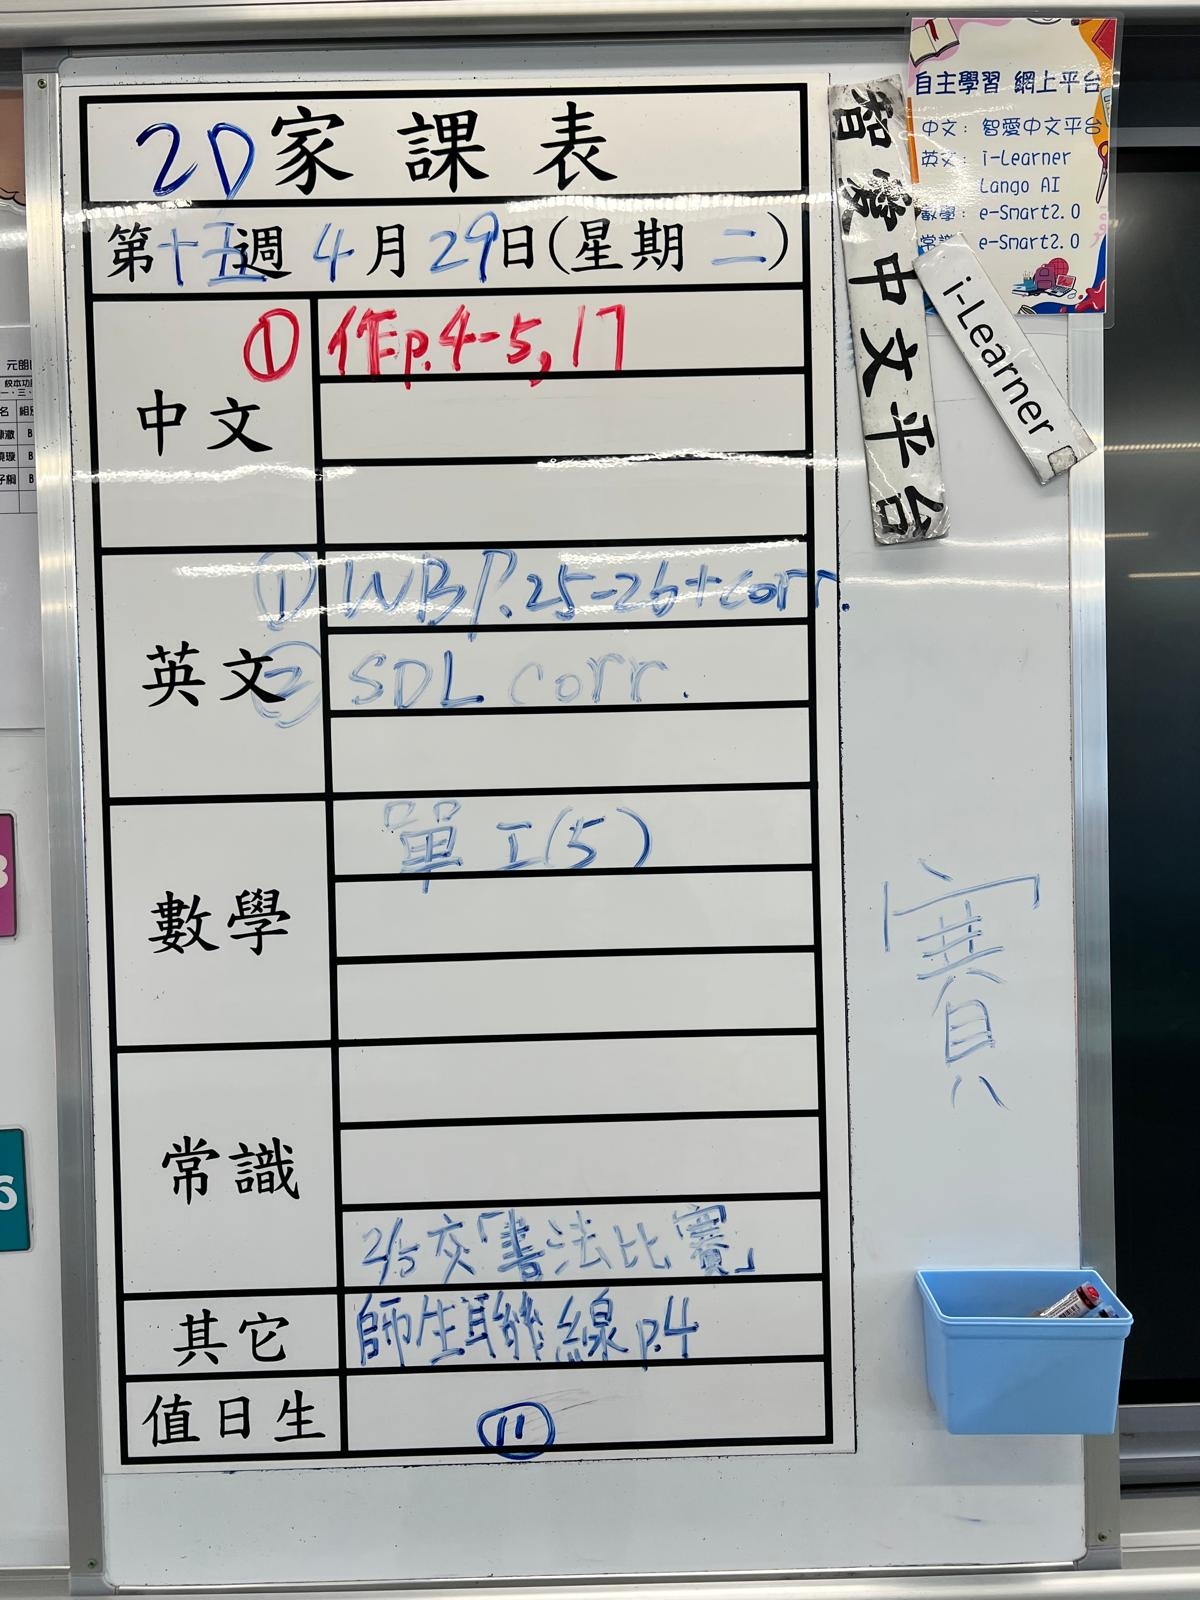 2D家課表
第十五週 4月29日(星期二)
中文
① 作p.4-5,17
英文
① WB P.25-26+corr.
② SDL corr.
數學
單工(5)
常識
2/5交「書法比賽」
其它
師生聯絡線p.4
值日生
⑪
智愛中文平台
i-Learner
自主學習 網上平台
中文: 智愛中文平台
英文: i-Learner
Lango AI
數學: e-Smart2.0
常識: e-Smart2.0
元朗
名 組別
B
B
B
6